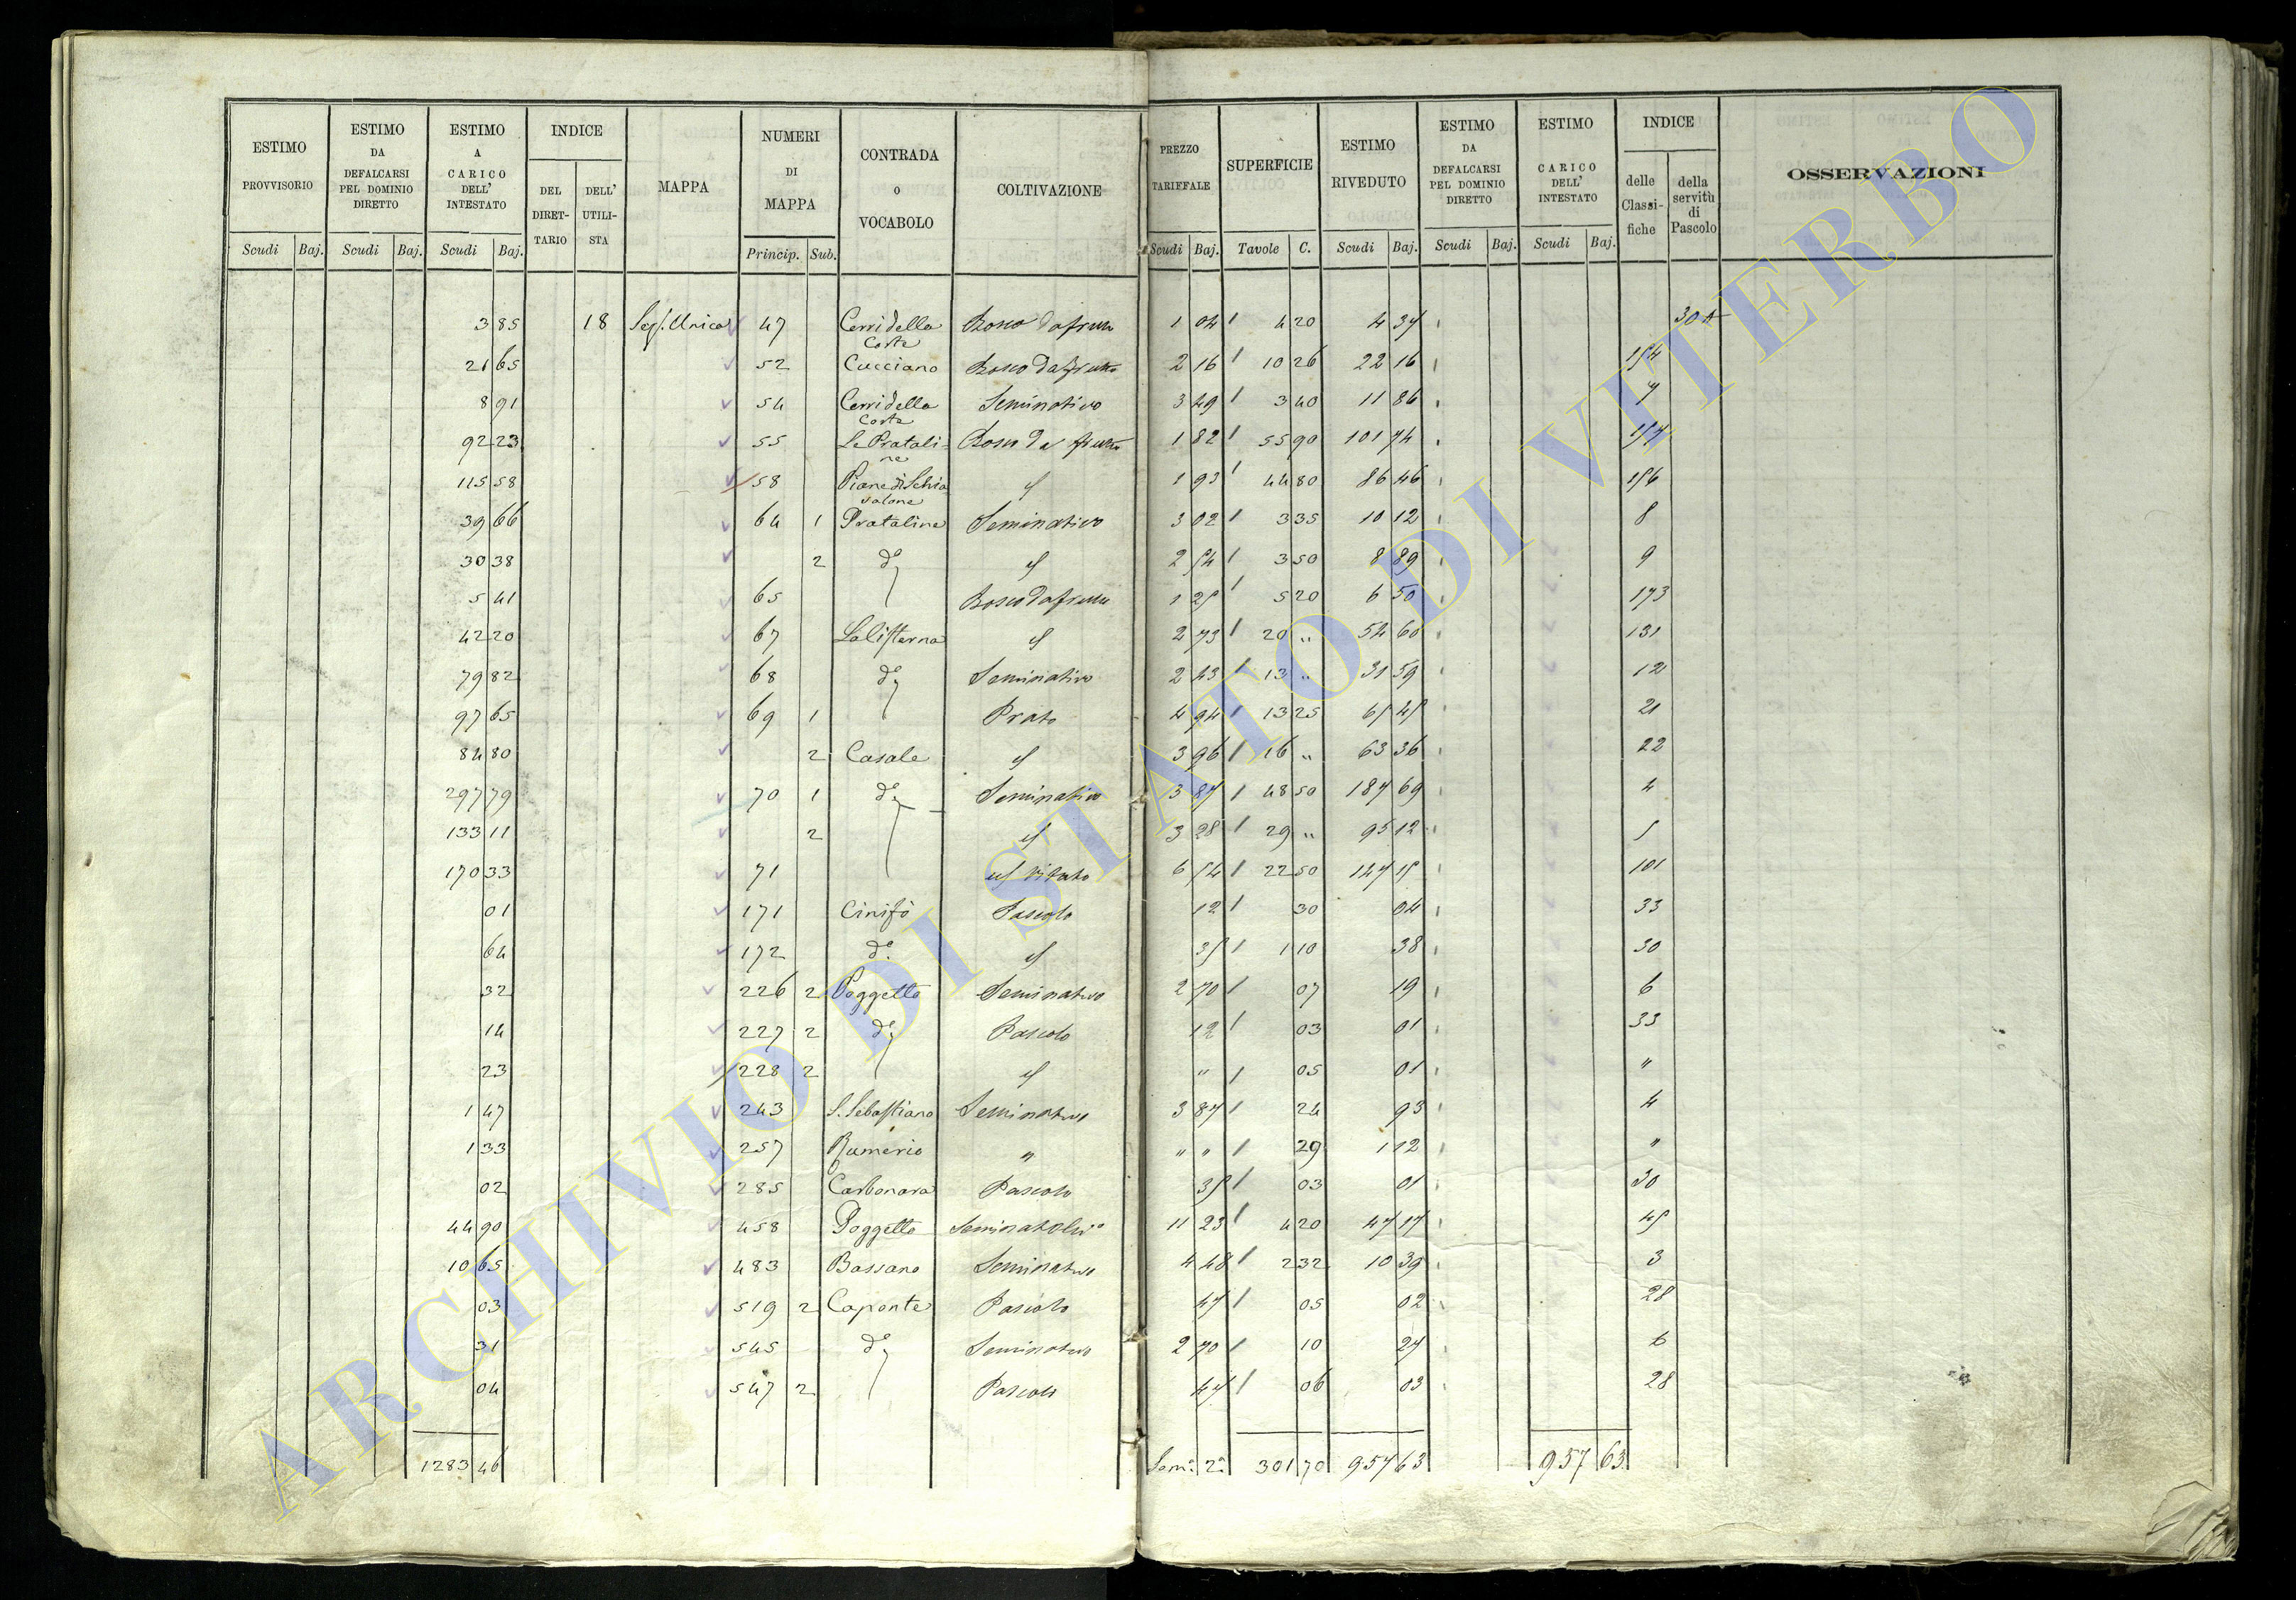 ESTIMO PROVVISORIO | ESTIMO DA DEFALCARSI PEL DOMINIO DIRETTO | ESTIMO A CARICO DELL' INTESTATO | INDICE | MAPPA | NUMERI DI MAPPA | CONTRADA O VOCABOLO | COLTIVAZIONE | PREZZO TARIFFALE | SUPERFICIE | ESTIMO RIVEDUTO | ESTIMO DA DEFALCARSI PEL DOMINIO DIRETTO | ESTIMO A CARICO DELL' INTESTATO | INDICE | OSSERVAZIONI
DEL DIRET-TARIO | DELL' UTILI-STA | delle Classi-fiche | della servitù di Pascolo
Scudi | Baj. | Scudi | Baj. | Scudi | Baj. | Princip. | Sub. | Scudi | Baj. | Tavole | C. | Scudi | Baj. | Scudi | Baj. | Scudi | Baj.
3 85 18 Sez. Unica 47 Cerri della Corte Bosco da frutto 1 04 4 20 4 37 30
21 65 52 Cucciano Bosco da frutto 2 16 10 26 22 16 154
8 91 54 Cerri della Corte Seminativo 3 49 3 40 11 86 7
92 23 55 Le Pratali-ne Bosco da frutto 1 82 55 90 101 74
115 58 58 Piane di Schia 1 93 44 80 86 46 156
39 66 64 1 Prataline Seminativo 3 02 3 35 10 12 8
30 38 2 do 2 54 3 50 8 89 9
5 41 65 Bosco da frutto 1 25 5 20 6 50 173
42 20 67 La Cisterna 2 73 20 " 54 60 131
79 82 68 do Seminativo 2 43 13 " 31 59 12
97 65 69 1 Prato 4 94 13 25 65 45 21
84 80 2 Casale 3 96 16 " 63 36 22
297 79 70 1 do Seminativo 3 87 48 50 187 69 4
133 11 2 3 28 29 " 95 12 5
170 33 71 vitato 6 54 22 50 147 15 101
01 171 Cinifò Pascolo 12 30 04 33
64 172 do 35 1 10 38 30
32 226 2 Poggetto Seminativo 2 70 07 19 6
14 227 2 do Pascolo 12 03 01 33
23 228 2 " 05 01 "
1 47 243 S. Sebastiano Seminativo 3 87 24 93 4
1 33 257 " " " 29 1 12 "
02 285 Carbonara Pascolo 35 03 01 30
44 90 458 Poggetto 11 23 4 20 47 17 45
10 65 483 Bassano Seminativo 4 48 2 32 10 39 3
03 519 2 Caponte Pascolo 47 05 02 28
31 545 do Seminativo 2 70 10 27 6
04 547 2 Pascolo 47 06 03 28
1283 46 Som. 2a 301 70 957 63 957 63
ARCHIVIO DI STATO DI VITERBO